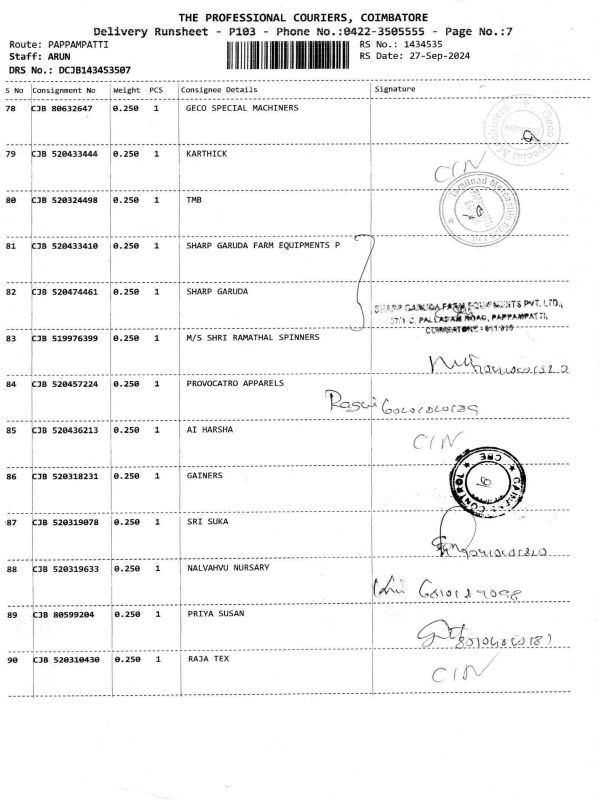 THE PROFESSIONAL COURIERS, COIMBATORE
Delivery Runsheet - P103 - Phone No.:0422-3505555 - Page No.:7
Route: PAPPAMPATTI
RS No.: 1434535
Staff: ARUN
RS Date: 27-Sep-2024
DRS No.: DCJB143453507
S No Consignment No Weight PCS Consignee Details Signature
78 CJB 80632647 0.250 1 GECO SPECIAL MACHINERS
Geco Special Machiners
79 CJB 520433444 0.250 1 KARTHICK
CIN
80 CJB 520324498 0.250 1 TMB
Tamilnad Mercantile
81 CJB 520433410 0.250 1 SHARP GARUDA FARM EQUIPMENTS P
82 CJB 520474461 0.250 1 SHARP GARUDA
SHARP GARUDA FARM EQUIPMENTS PVT. LTD.,
PALLADAM ROAD, PAPPAMPATTI,
COIMBATORE
83 CJB 519976399 0.250 1 M/S SHRI RAMATHAL SPINNERS
84 CJB 520457224 0.250 1 PROVOCATRO APPARELS
85 CJB 520436213 0.250 1 AI HARSHA
CIN
86 CJB 520318231 0.250 1 GAINERS
CBE
CONTROL
87 CJB 520319078 0.250 1 SRI SUKA
88 CJB 520319633 0.250 1 NALVAHVU NURSARY
89 CJB 80599204 0.250 1 PRIYA SUSAN
90 CJB 520310430 0.250 1 RAJA TEX
CIN